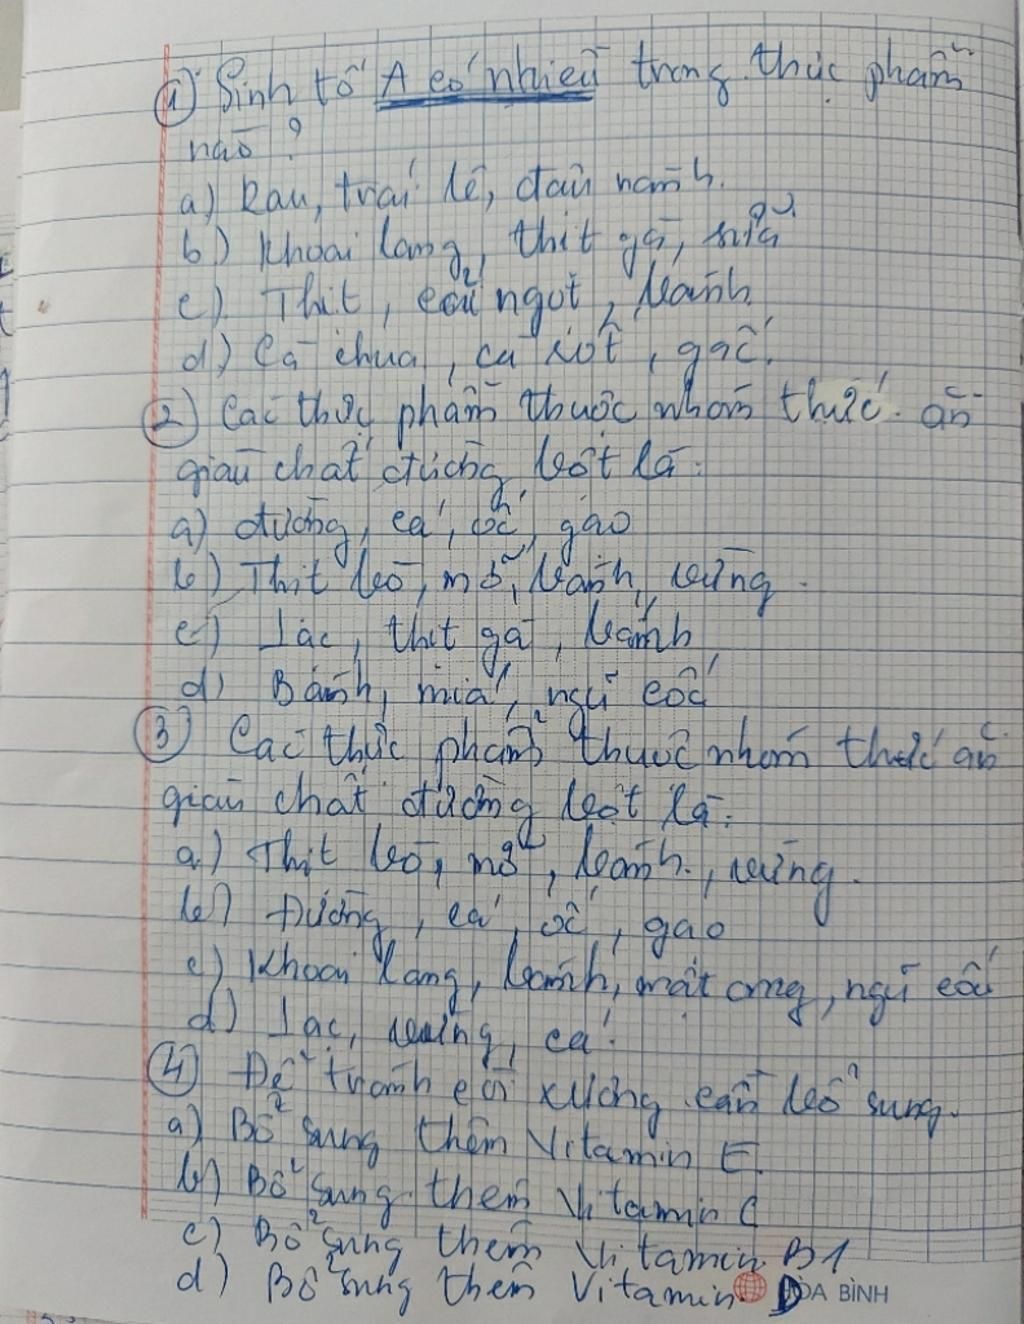 1) Sinh tố A có nhiều trong thực phẩm
nào ?
a) Rau, trái lê, đậu nành.
b) Khoai lang, thịt gà, sữa
c) Thịt, củ ngọt, bánh
d) Cà chua, cà rốt, gấc.
2) Các thực phẩm thuộc nhóm thức ăn
giàu chất đường bột là:
a) đường, cá, ốc, gạo
b) Thịt bò, mỡ, bánh, vừng.
c) Lạc, thịt gà, bánh
d) Bánh, mía, ngũ cốc
3) Các thực phẩm thuộc nhóm thức ăn
giàu chất đường bột là:
a) Thịt bò, mỡ, bánh, vừng.
b) Đường, cá, ốc, gạo
c) Khoai lang, bánh, mật ong, ngũ cốc
d) Lạc, vừng, cá.
4) Để tránh còi xương cần bổ sung.
a) Bổ sung thêm Vitamin E.
b) Bổ sung thêm Vitamin C
c) Bổ sung thêm Vitamin B1
d) Bổ sung thêm Vitamin D
ÒA BÌNH